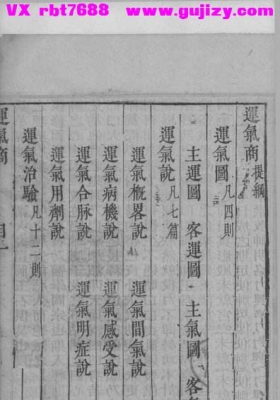 VX rbt7688 www.gujizy.com
運氣商 提綱
運氣圖 凡四則
主運圖 客運圖 主氣圖 客氣
運氣說 凡七篇
運氣概畧說 運氣間氣說
運氣病機說 運氣感受說
運氣合脉說 運氣明症說
運氣用劑說
運氣治驗 凡十二則
運氣商